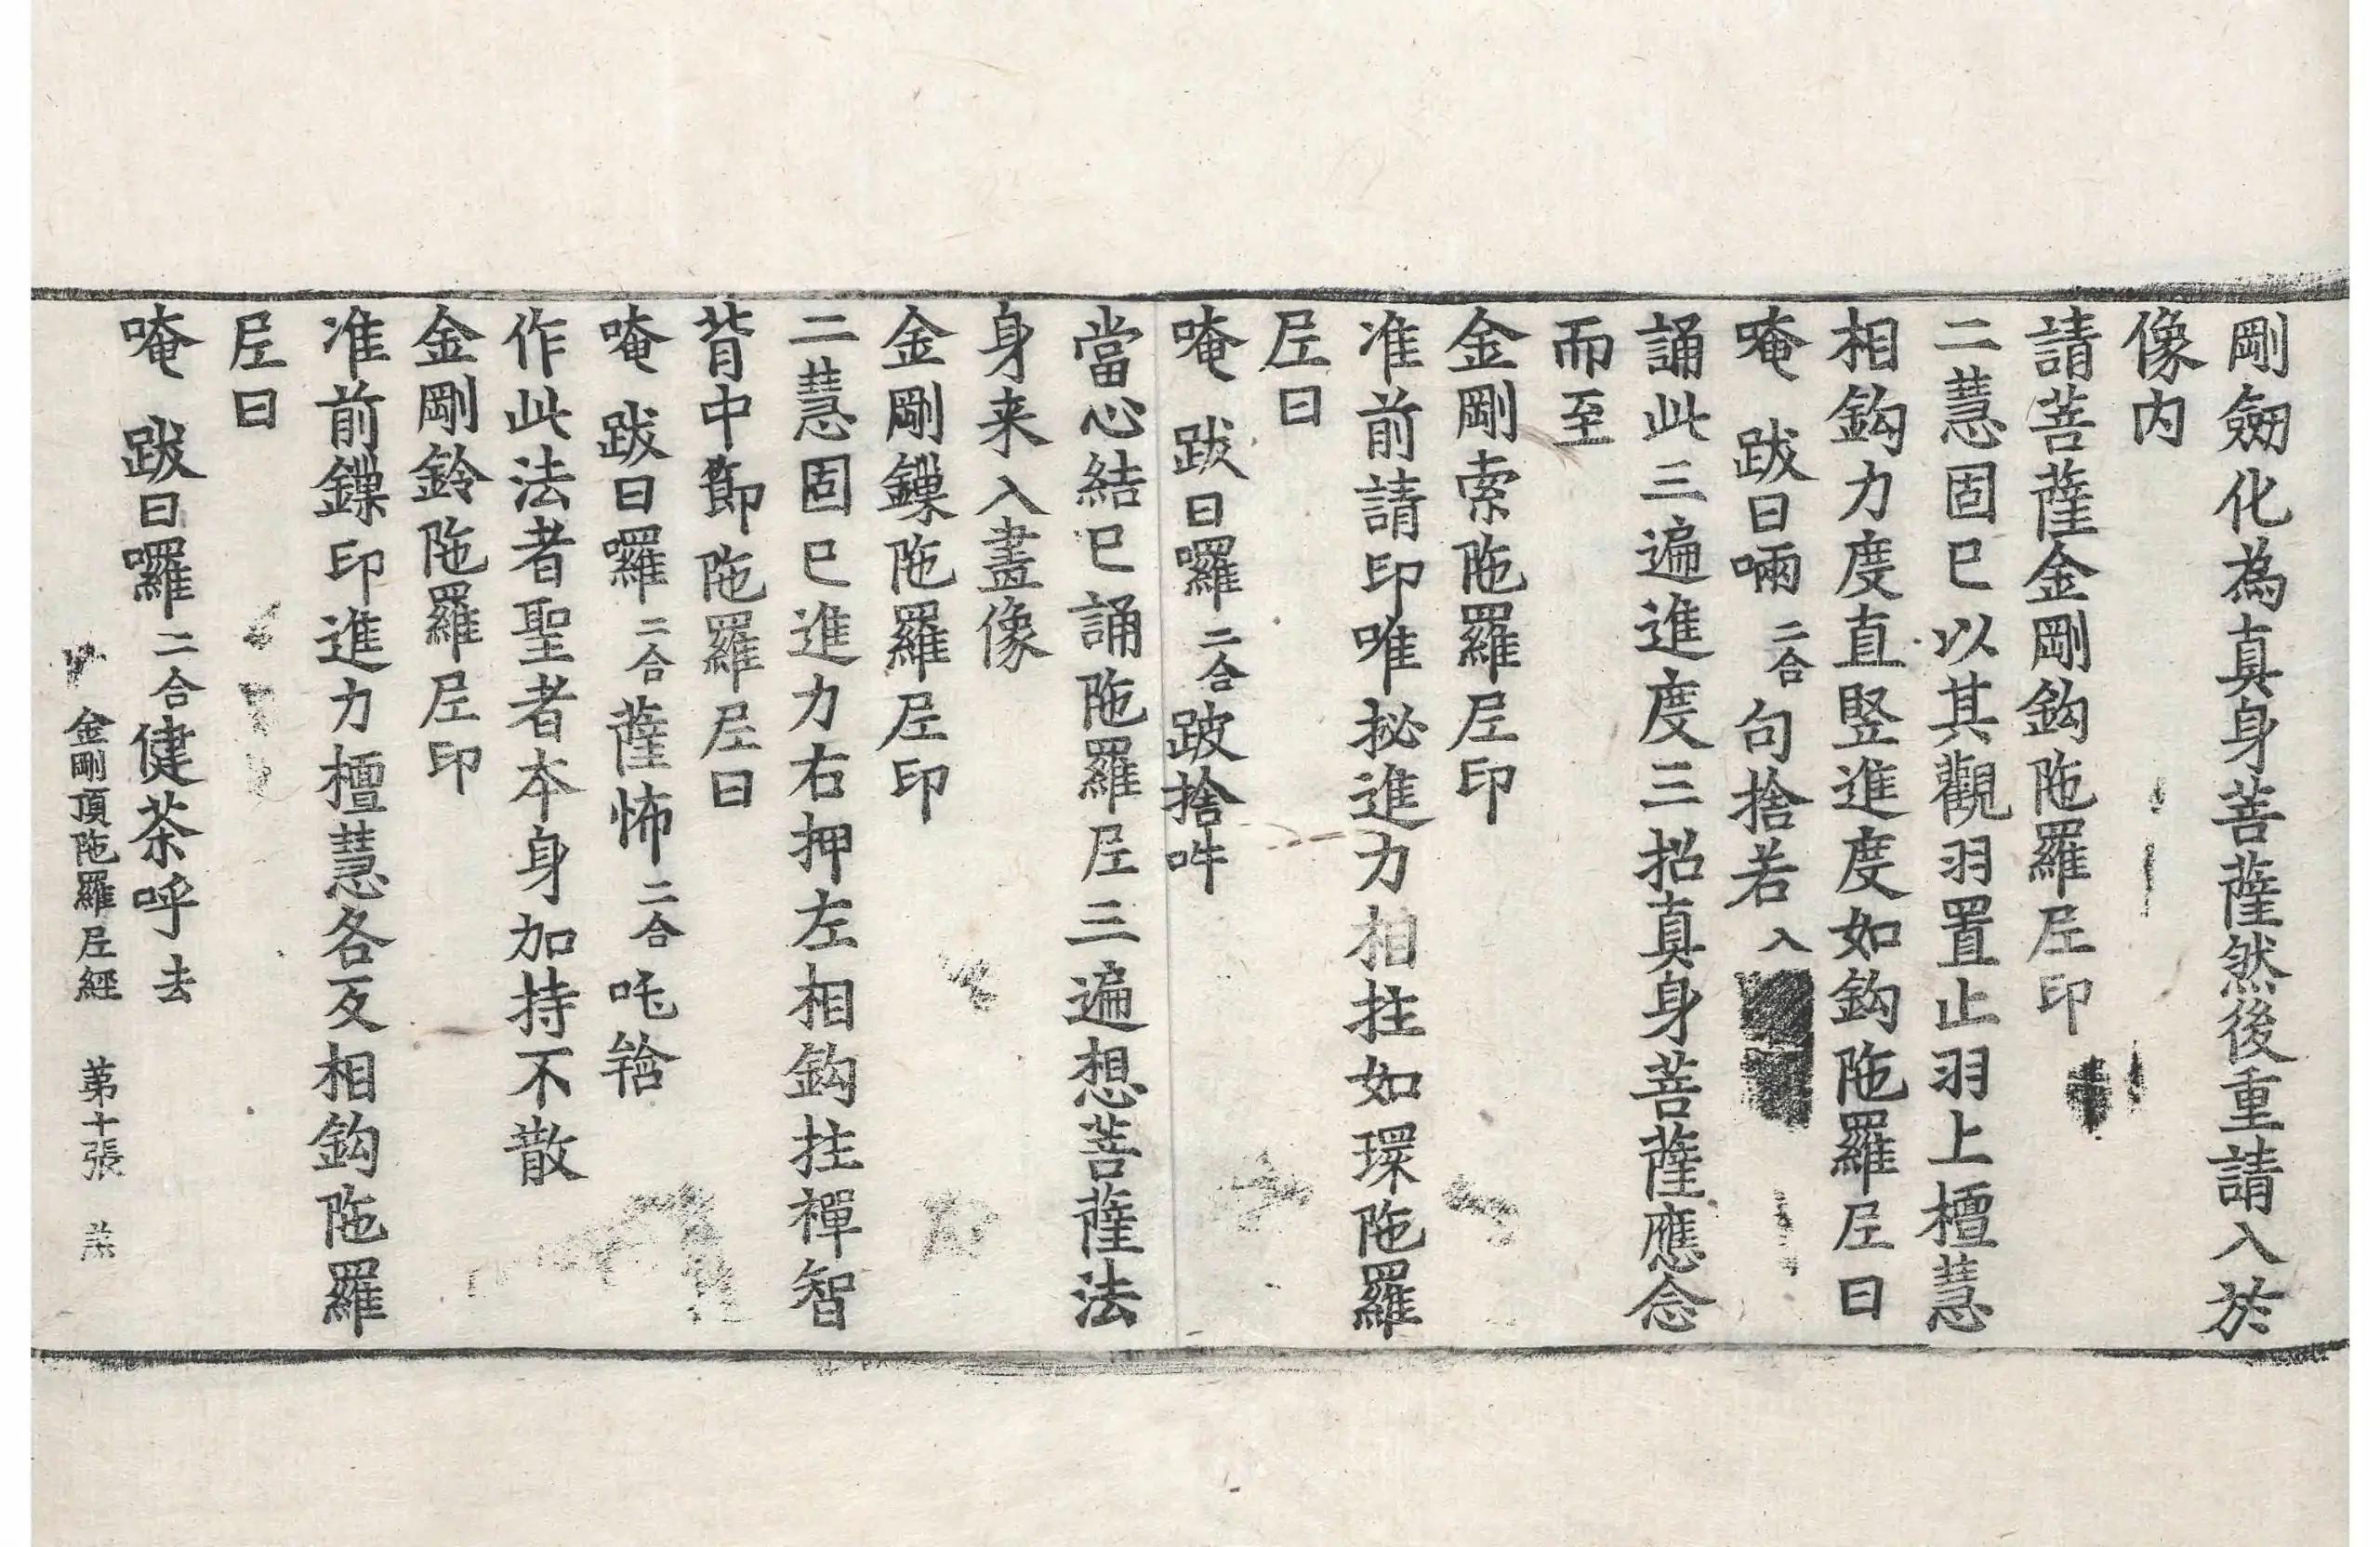 剛劒化為真身菩薩然後重請入於
像内
請菩薩金剛鈎陁羅𡰱印
二慧固巳以其觀羽置止羽上檀慧
相鈎力度直竪進度如鈎陁羅𡰱曰
唵 跋日㘑二合句捨若入
誦此三遍進度三招真身菩薩應念
而至
金剛索陁羅𡰱印
准前請印唯挻進力相拄如環陁羅
𡰱曰
唵 跋日囉二合跛捨吽
當心結巳誦陁羅𡰱三遍想菩薩法
身来入畫像
金剛鏁陁羅𡰱印
二慧固巳進力右押左相鈎拄禪智
背中節陁羅𡰱曰
唵 跋日囉二合薩怖二合吒𤚥
作此法者聖者本身加持不散
金剛鈴陁羅𡰱印
准前鏁印進力檀慧各反相鈎陁羅
𡰱曰
唵 跋日囉二合健茶呼去
金剛頂陁羅𡰱經 第十張 羔